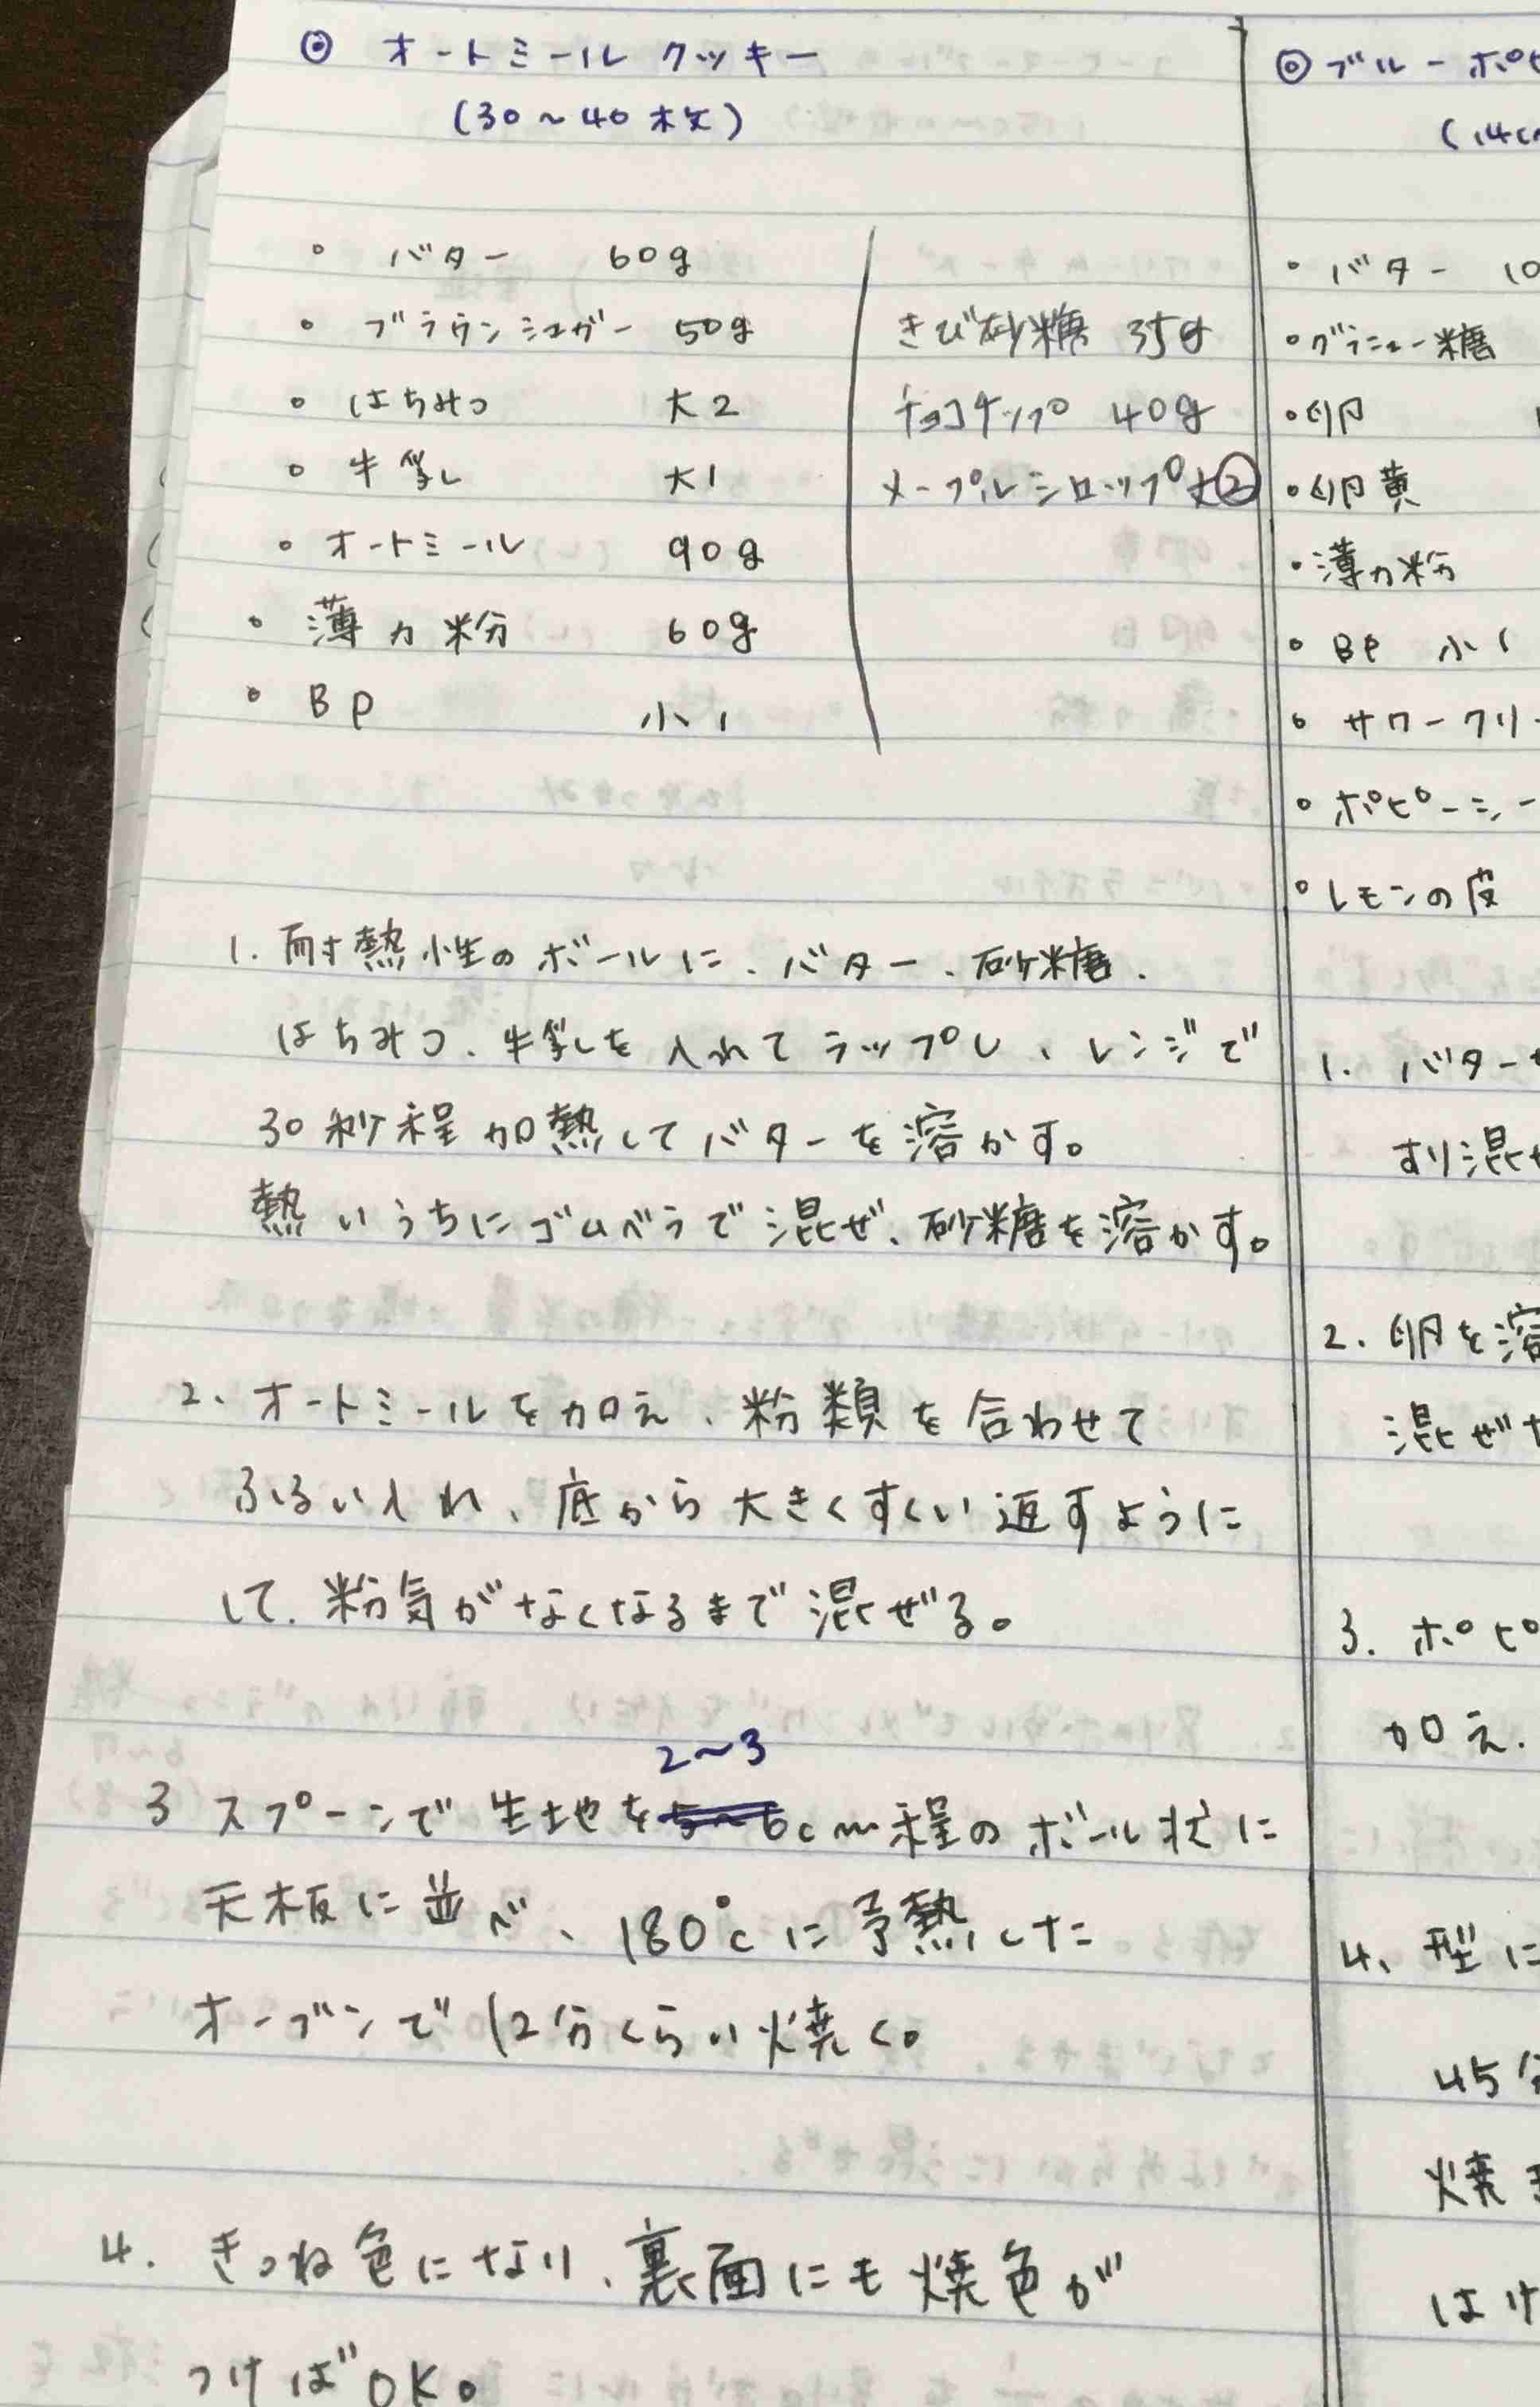 ◎ オートミールクッキー
(30〜40枚)
・ バター 60g
・ ブラウンシュガー 50g
・ はちみつ 大2
・ 牛乳 大1
・ オートミール 90g
・ 薄力粉 60g
・ BP 小1
きび砂糖 35g
チョコチップ 40g
メープルシロップ大②
1. 耐熱性のボールに、バター、砂糖、
はちみつ、牛乳を入れてラップし、レンジで
30秒程加熱してバターを溶かす。
熱いうちにゴムベラで混ぜ、砂糖を溶かす。
2、オートミールを加え、粉類を合わせて
ふるい入れ、底から大きくすくい返すように
して、粉気がなくなるまで混ぜる。
2〜3
3 スプーンで生地を5〜6cm程のボール状に
天板に並べ、180℃に予熱した
オーブンで12分くらい焼く。
4. きつね色になり、裏面にも焼色が
つけばOK。
◎ブルーポピ
(14c
・バター 10
・グラニュー糖
・卵
・卵黄
・薄力粉
・BP 小1
・サワークリー
・ポピーシー
・レモンの皮
1. バター
すり混ぜ
2. 卵を溶
混ぜ
3. ポピ
加え、
4、型に
45分
焼き
はけ